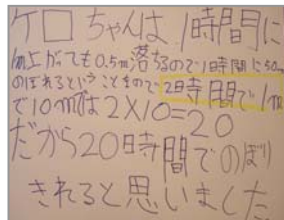 ケロちゃんは1時間に
1m上がっても0.5m落ちるので1時間に50cm
のぼれるということなので2日時間で1m
で10mでは2×10=20
だから20日時間でのぼり
きれると思いました